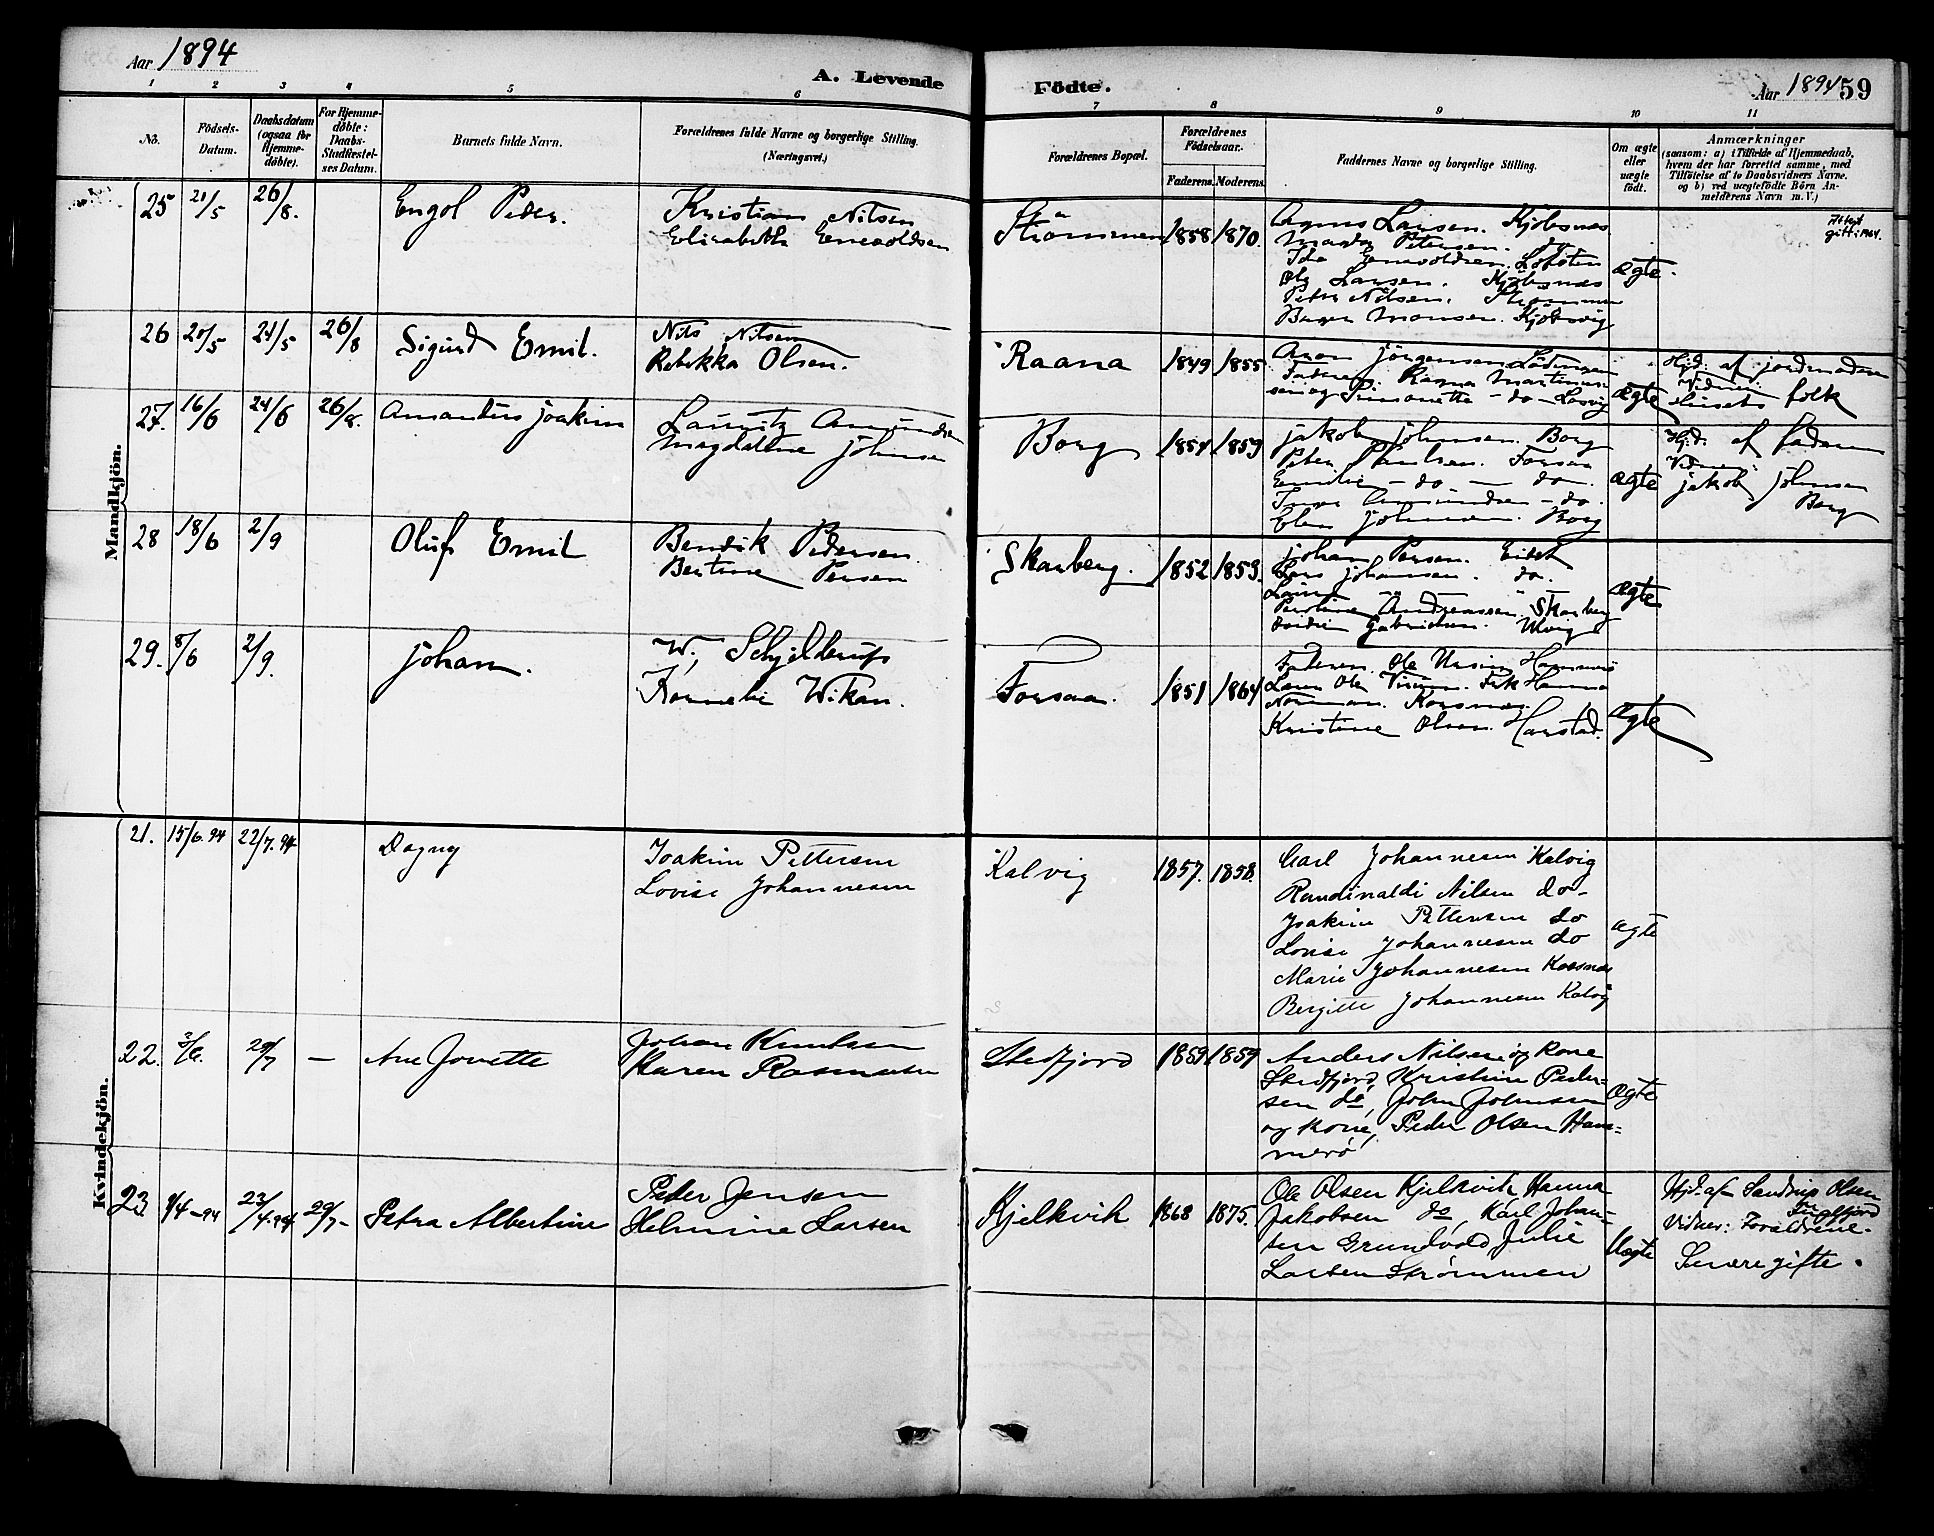 Aar 1894
A. Levende
Fødte.
Aar 1894 59
1 2 3 4 5 6 7 8 9 10 11
No.
Fødsels-
Datum.
Daabsdatum
(ogsaa for
Hjemme-
døbte).
For Hjemme-
døbte:
Daabs-
Stadfæstel-
ses Datum.
Barnets fulde Navn.
Forældrenes fulde Navne og borgerlige Stilling.
(Næringsvei.)
Forældrenes Bopæl.
Forældrenes
Fødselsaar.
Faderens. Moderens.
Faddernes Navne og borgerlige Stilling.
Om ægte
eller
uægte
født.
Anmærkninger
(saasom: a) i Tilfælde af Hjemmedaab,
hvem der har forrettet samme, med
Tilføielse af to Daabsvidners Navne.
og b) ved uægtefødte Børn An-
melderens Navn m. V.)
Mandkjøn.
25 21/5 26/8. Engol Peder.
Kristian Nilsen
Elisabeth Enevoldsen
Strømmen 1858 1870.
Larsen. Kjøbsnæs
Magda Petersen. do
Ida Enevoldsen. Lofoten
Ole Larsen. Kjøbsnæs
Peter Nilsen. Strømmen
Mansen. Kjøbsvig
ægte.
Attest
gift: 1964.
26 20/5 21/5 26/8 Sigurd Emil.
Nils Nilsen
Rebekka Olsen.
Raana 1849 1855
Aron Jørgensen Lødingen
Faderen. Martinus-
sen og Simonette - do -
ægte
Hjd. af jordmoderen
Vidner:
Husets folk
27. 16/6 24/6 26/8. Amandus Joakim
Lauritz Amundsen
Magdalene Johnsen
Borg 1854 1859
Jakob Johnsen. Borg
Peter Paulsen. Forsaa
Emilie - do - do.
Amundsen - do.
Elen Johnsen. Borg
ægte
Hjd. af faderen
Vidner:
Jakob Johnsen
Borg
28 18/6 2/9 Oluf Emil
Bendik Pedersen.
Bertine Persen
Skarberg. 1852 1853.
Johan Persen. Eidet
Lars Johansen. do.
Andreassen Skarberg
Gabrielsen. Ulvig
ægte
29. 8/6 2/9. Johan.
W. Schjelderup
Kornelie Wikan.
Forsaa. 1851 1864
Faderen. Ole Hammerø
Frk Hanna
Normann. Korsnes.
Kristine Olsen. Harstad.
ægte
Kvindekjøn.
21. 15/6. 94 22/7. 94 Dagny
Joakim Pettersen
Lovise Johannesen
Kalvig 1857. 1858.
Carl Johannesen Kalvig
Randinaldi Nilsen do-
Joakim Pettersen do
Lovise Johannesen do
Marie Johannesen Korsnæs
Bergitte Johannesen Kalvig
ægte
22. 3/6. 29/7 — Ane Jonette
Johan Knutsen
Karen Rasmussen
Stedfjord 1859 1859
Anders Nilsen og kone
Stedfjord, Kristine Peder-
sen do, John Johnsen
og kone, Peder Olsen Ham-
merø
ægte
23 9/4-94 23/4.94 29/7- Petra Albertine
Peder Jensen
Helmine Larsen
Kjelkvik 1868 1875.
Ole Olsen Kjelkvik, Hanna
Jakobsen do, Karl Johan-
sen Grundvold, Julie
Larsen Strømmen
Uægte
Hjd. af Olsen
Tingfjord
Vidner: Forældrene.
Senere gifte.